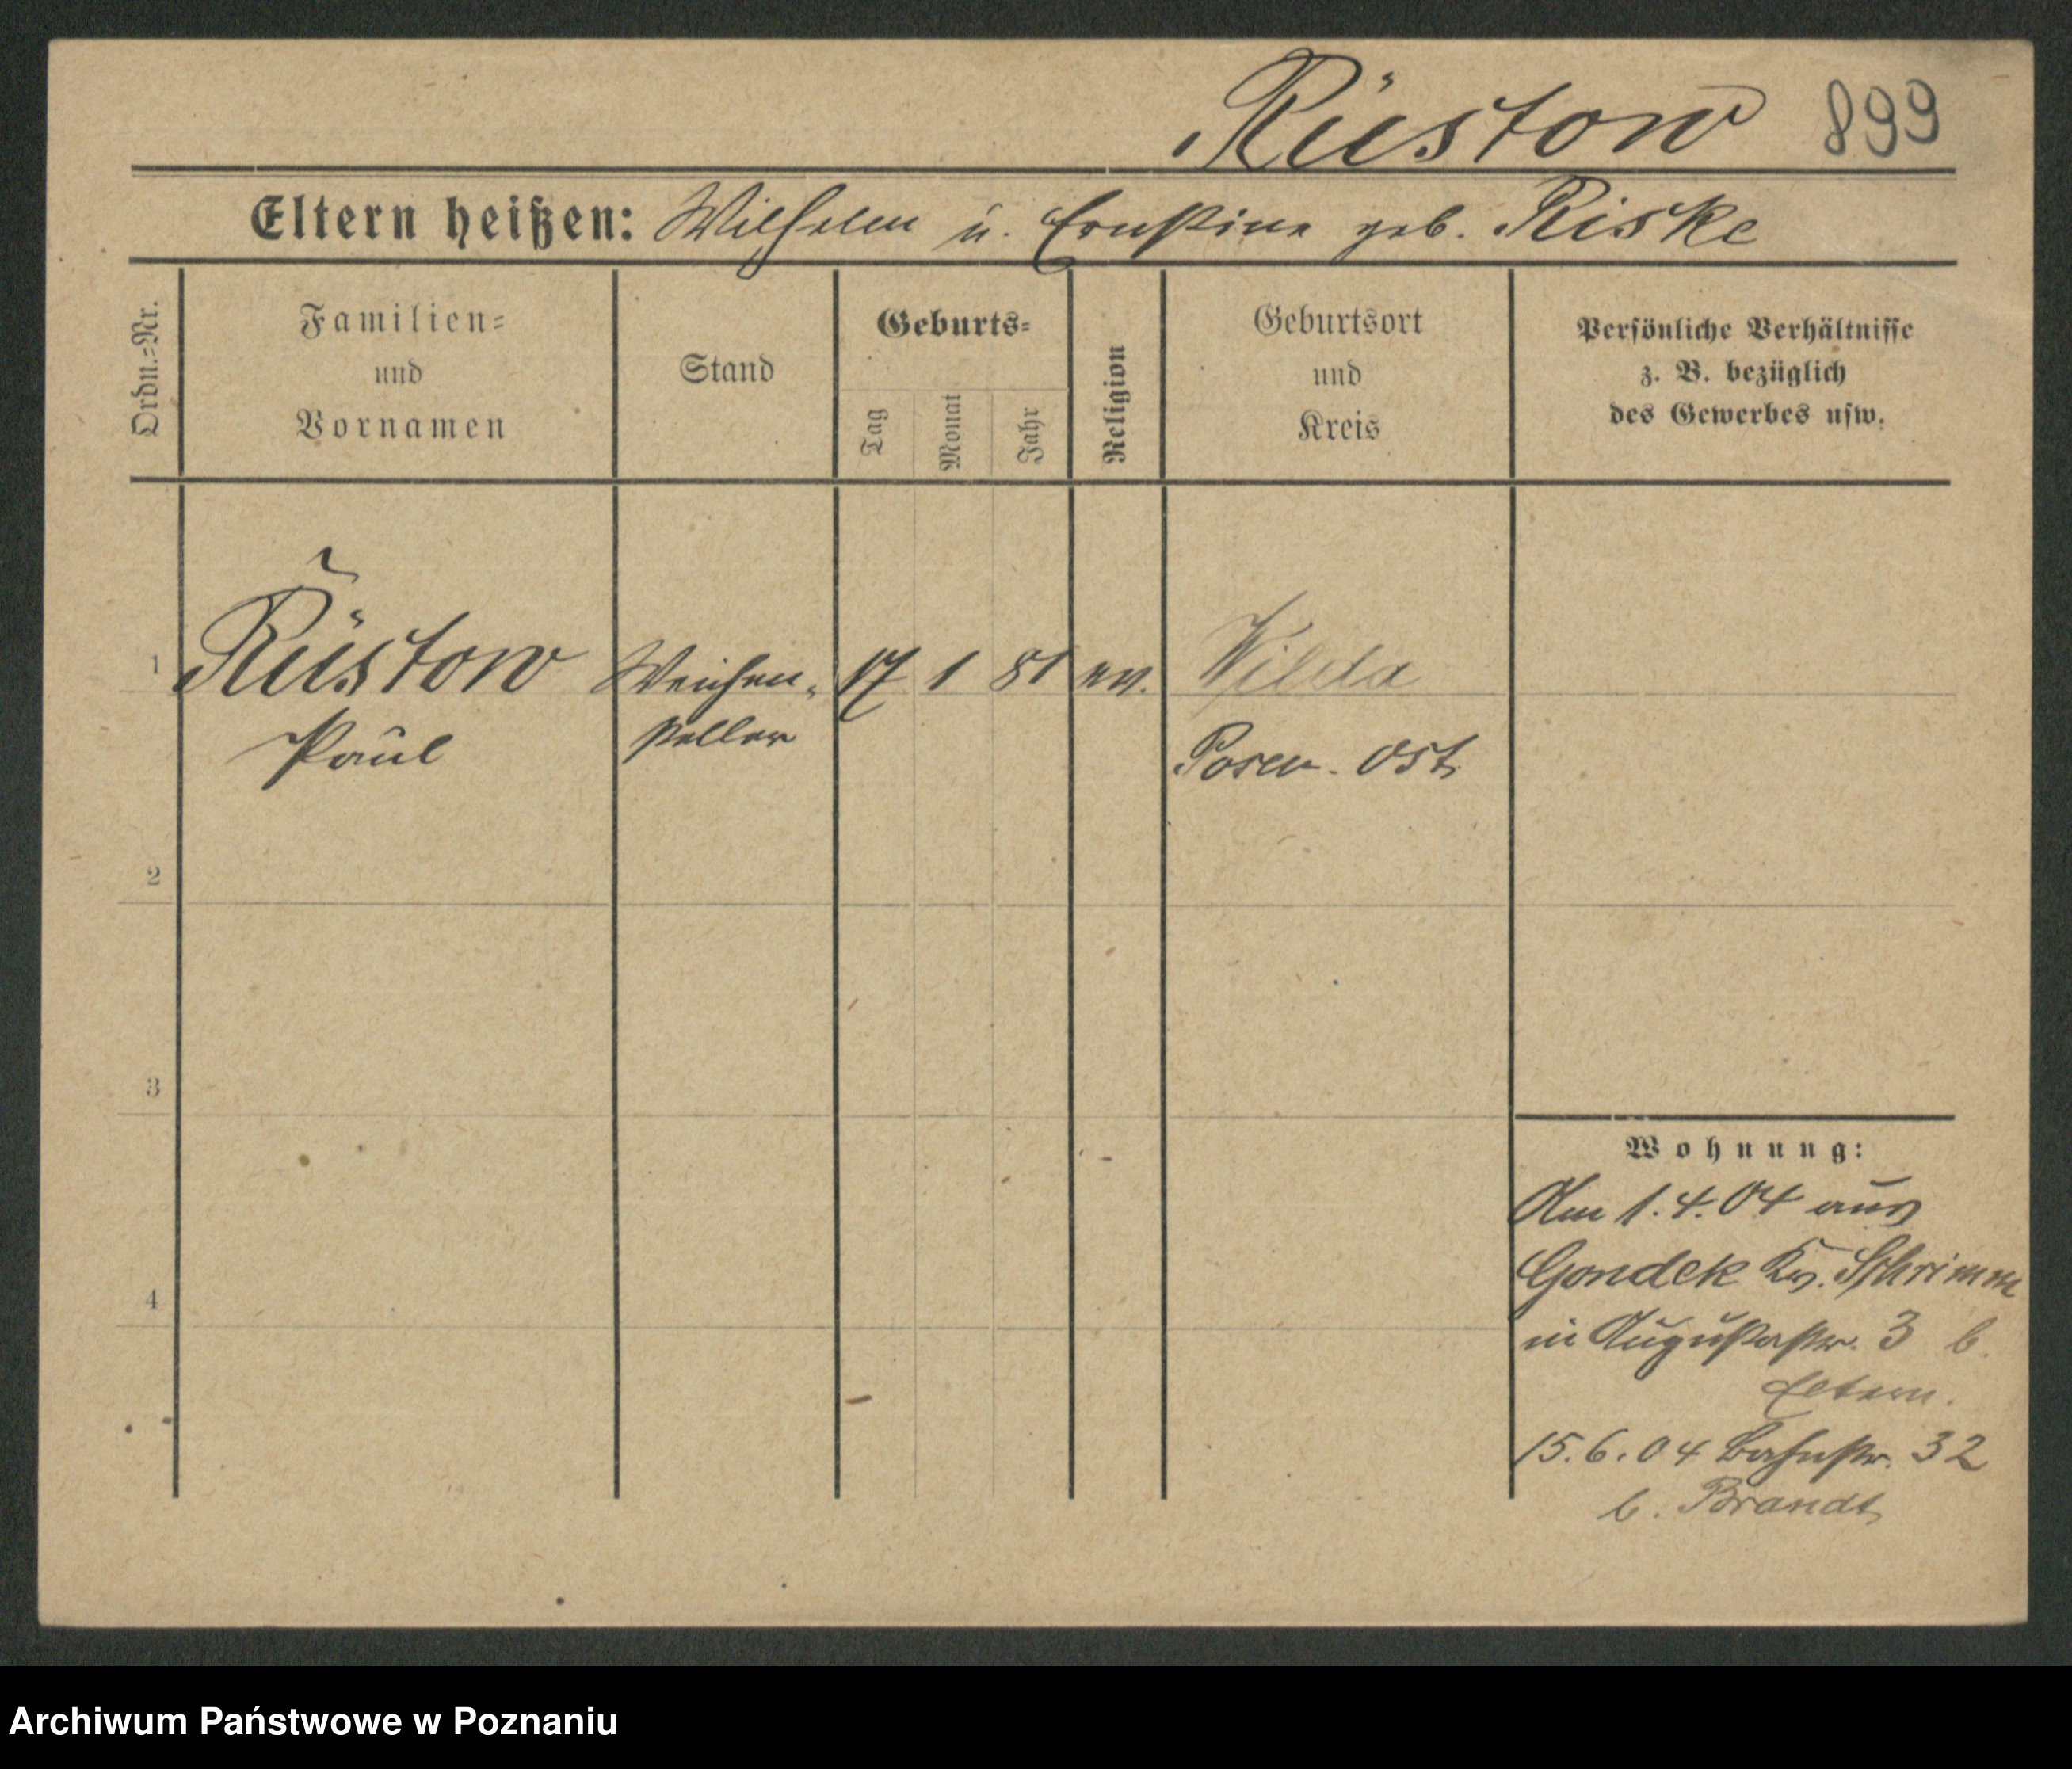 Rüstow 899
Eltern heißen: Wilhelm u. Ernstine geb. Riske
Ordn.-Nr.
Familien- und Vornamen
Stand
Geburts-
Tag
Monat
Jahr
Religion
Geburtsort und Kreis
Persönliche Verhältnisse
z. B. bezüglich
des Gewerbes usw.
1 Rüstow Weichen- 17 1 81 ev. Wilda
Paul steller Posen-Ost
2
3
4
Wohnung:
Am 1.4.04 aus
Gondek Kr. Schrimm
in Augustastr. 3 b.
Eltern.
15.6.04 Bahnstr. 32
b. Brandt
Archiwum Państwowe w Poznaniu